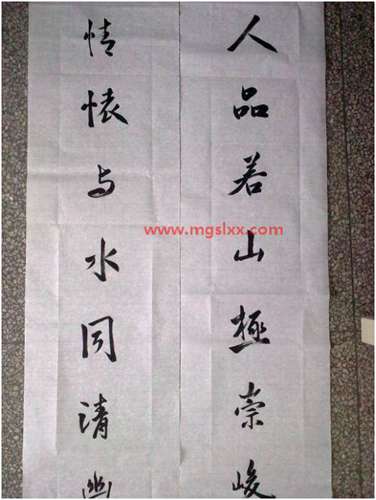 人品若山極崇峻
情懐与水同清幽
www.mgslxx.com